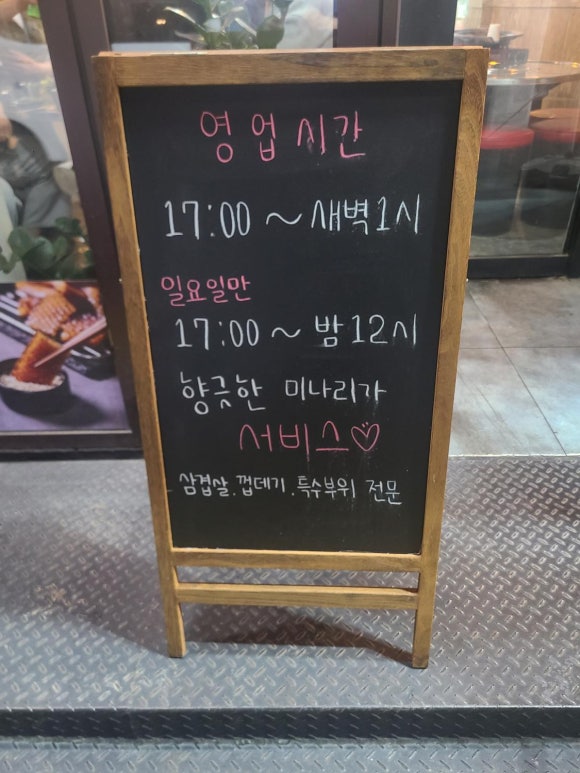 영업시간
17:00 ~ 새벽1시
일요일만
17:00 ~ 밤12시
향긋한 미나리가
서비스♡
삼겹살.껍데기.특수부위 전문